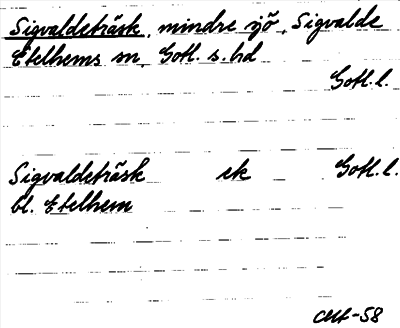 Sigvaldeträsk, mindre sjö, Sigvalde
Etelhems sn, Gotl. s. hd
Gotl. l.
Sigvaldeträsk ek Gotl. l.
bl. Etelhem